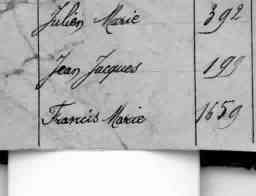 Julien Marie 392
Jean Jacques 199
Francis Marie 1659